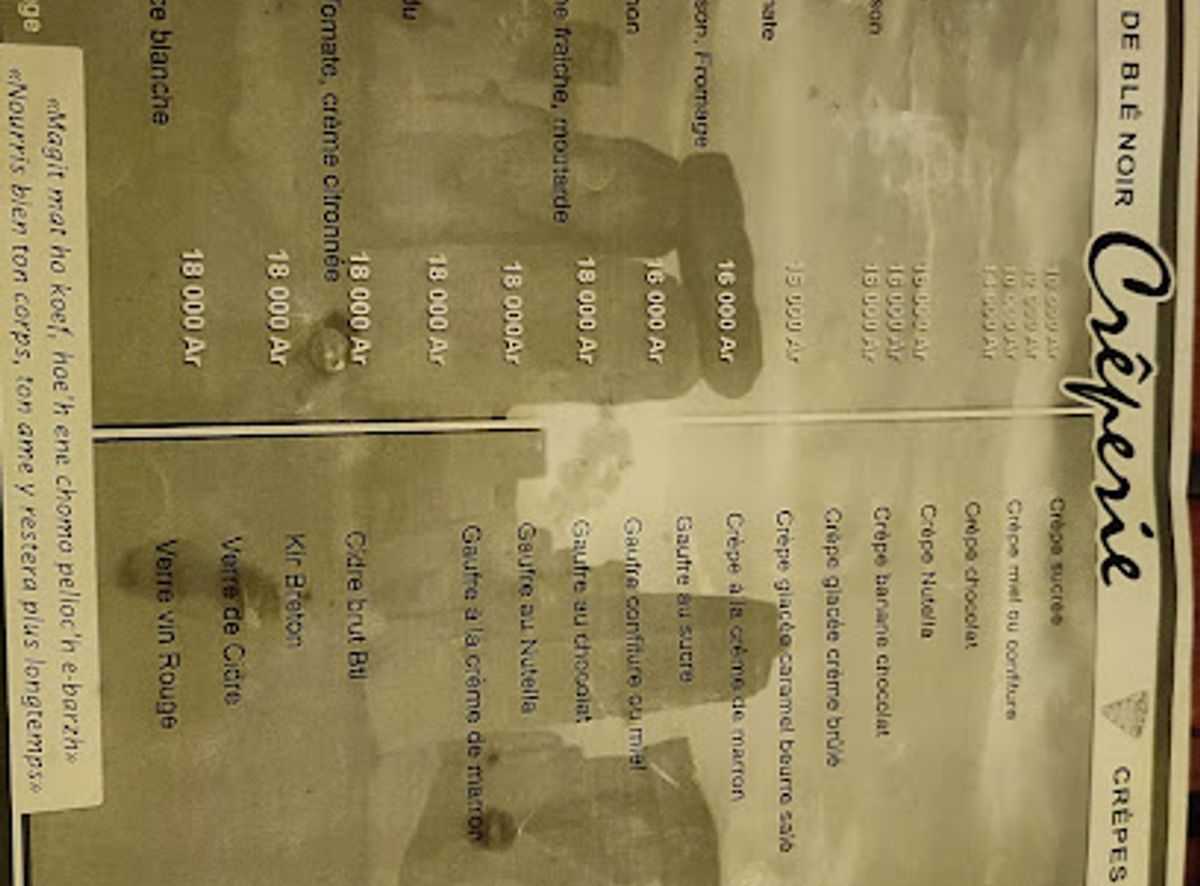 DE BLÉ NOIR
Crêperie
CRÊPES
15 000 Ar
16 000 Ar
16 000 Ar
15 000 Ar
16 000 Ar
Fromage
16 000 Ar
fraiche, moutarde
18 000 Ar
18 000Ar
18 000 Ar
18 000 Ar
Tomate, crème citronnée
18 000 Ar
blanche
18 000 Ar
Crêpe sucrée
Crêpe miel ou confiture
Crêpe chocolat
Crêpe Nutella
Crêpe banane chocolat
Crêpe glacée crème brûlé
Crêpe glacée caramel beurre salé
Crêpe à la crème de marron
Gaufre au sucre
Gaufre confiture ou miel
Gaufre au chocolat
Gaufre au Nutella
Gaufre à la crème de marron
Cidre brut Btl
Kir Breton
Verre de Cidre
Verre vin Rouge
«Magit mat ho koef, hoe'h ene choma pelloc'h e-barzh»
«Nourris bien ton corps, ton ame y restera plus longtemps»